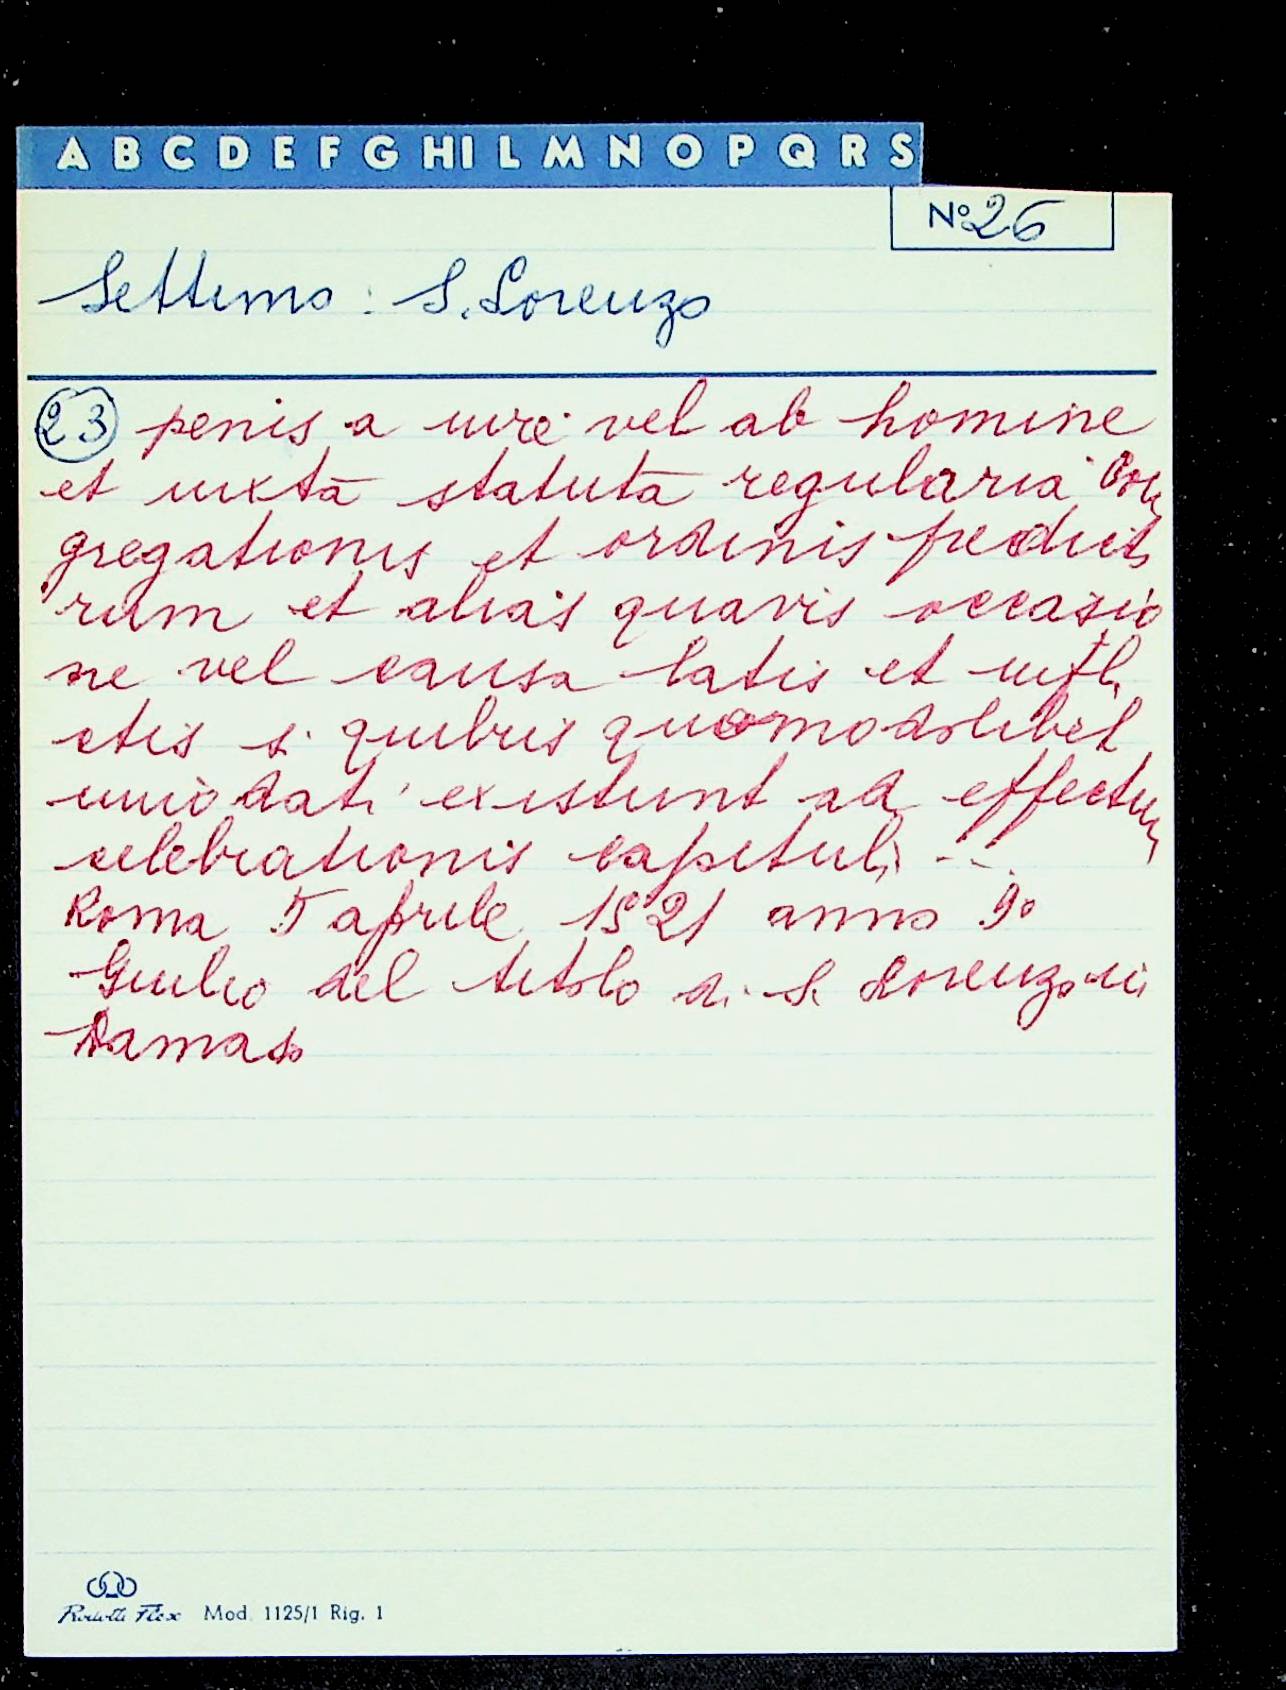 A B C D E F G HI L M N O P Q R S
N° 26
Settimo : S. Lorenzo
23 penis a iure vel ab homine
et iuxta statuta regularia Con
gregationis et ordinis predicto
rum et alias quavis occasio
ne vel causa latis et infli
ctis si quibus quomodolibet
innodati existunt ad effectum
celebrationis capituli ...
Roma 5 aprile 1521 anno 9°
Giulio del titolo di S. Lorenzo in
Damaso
Flex Mod. 1125/1 Rig. 1